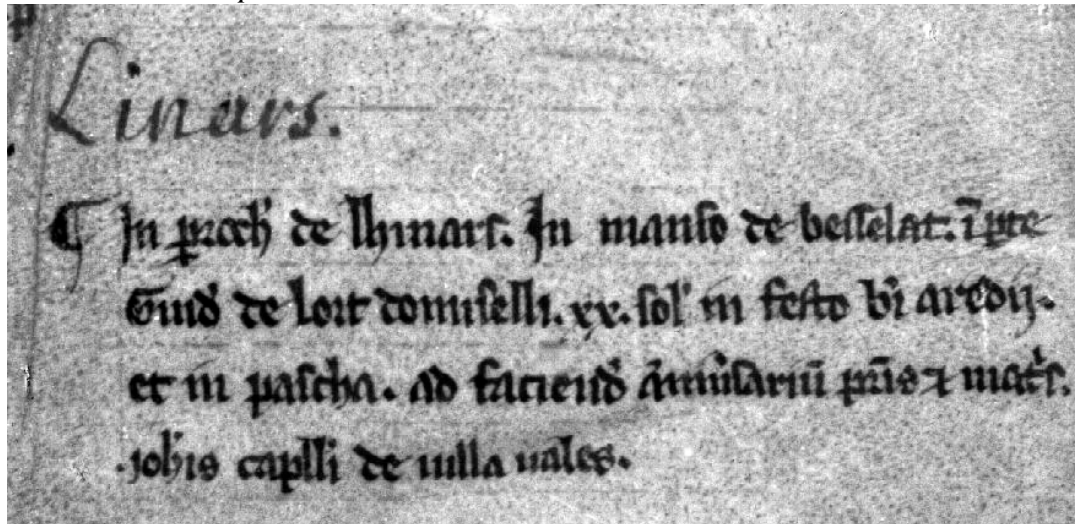 Linars.
¶ In p̱roch̕ de lhinars. In manso de besselat. ī p̱te
Guid̕ de lort domiselli. xx. sol̕ in festo bī aredij.
et in pascha. ad faciend̕ āniūsariū pr̄is ⁊ mat̕s.
johīs cap̄lli de uilla uales.